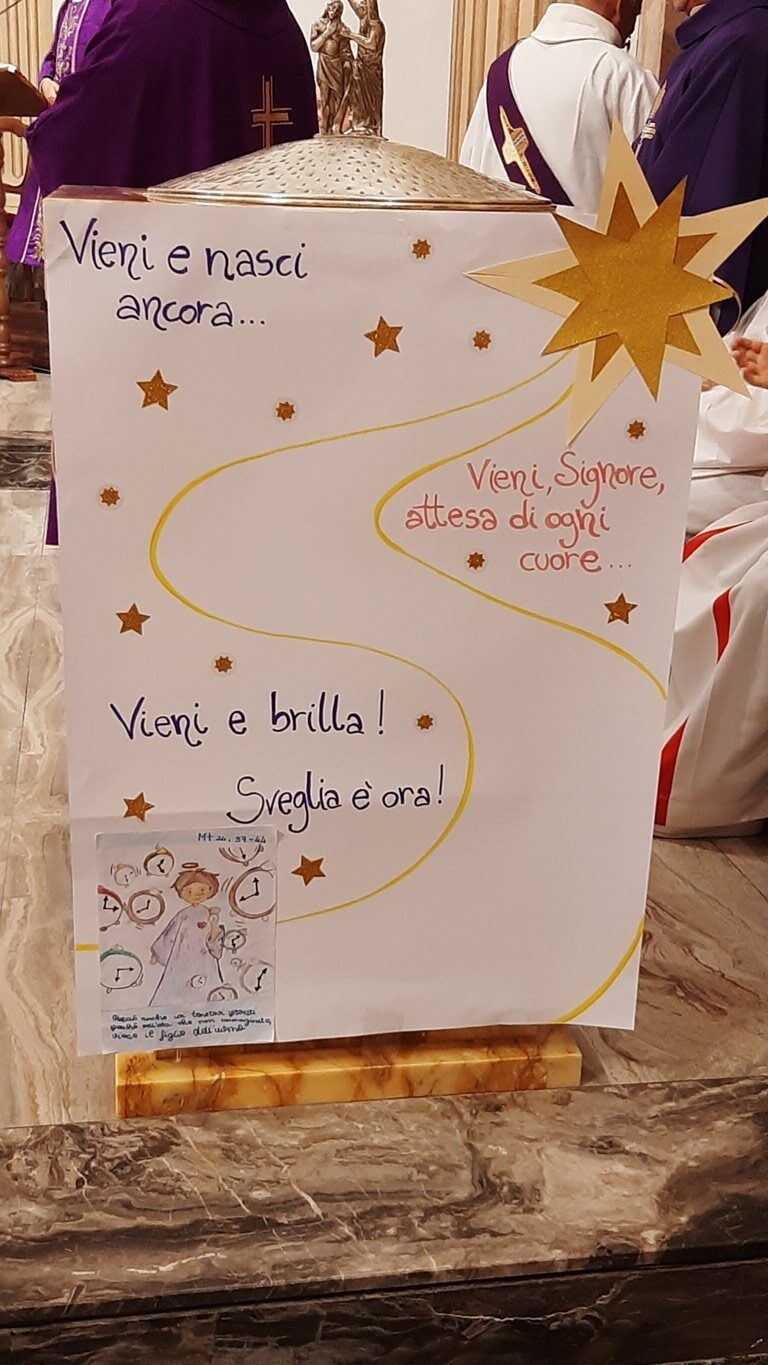 Vieni e nasci
ancora...
Vieni, Signore,
attesa di ogni
cuore...
Vieni e brilla!
Sveglia è ora!
Mt 24, 37-44
anche voi tenetevi pronti
perché nell'ora che non immaginate,
viene il figlio dell'uomo